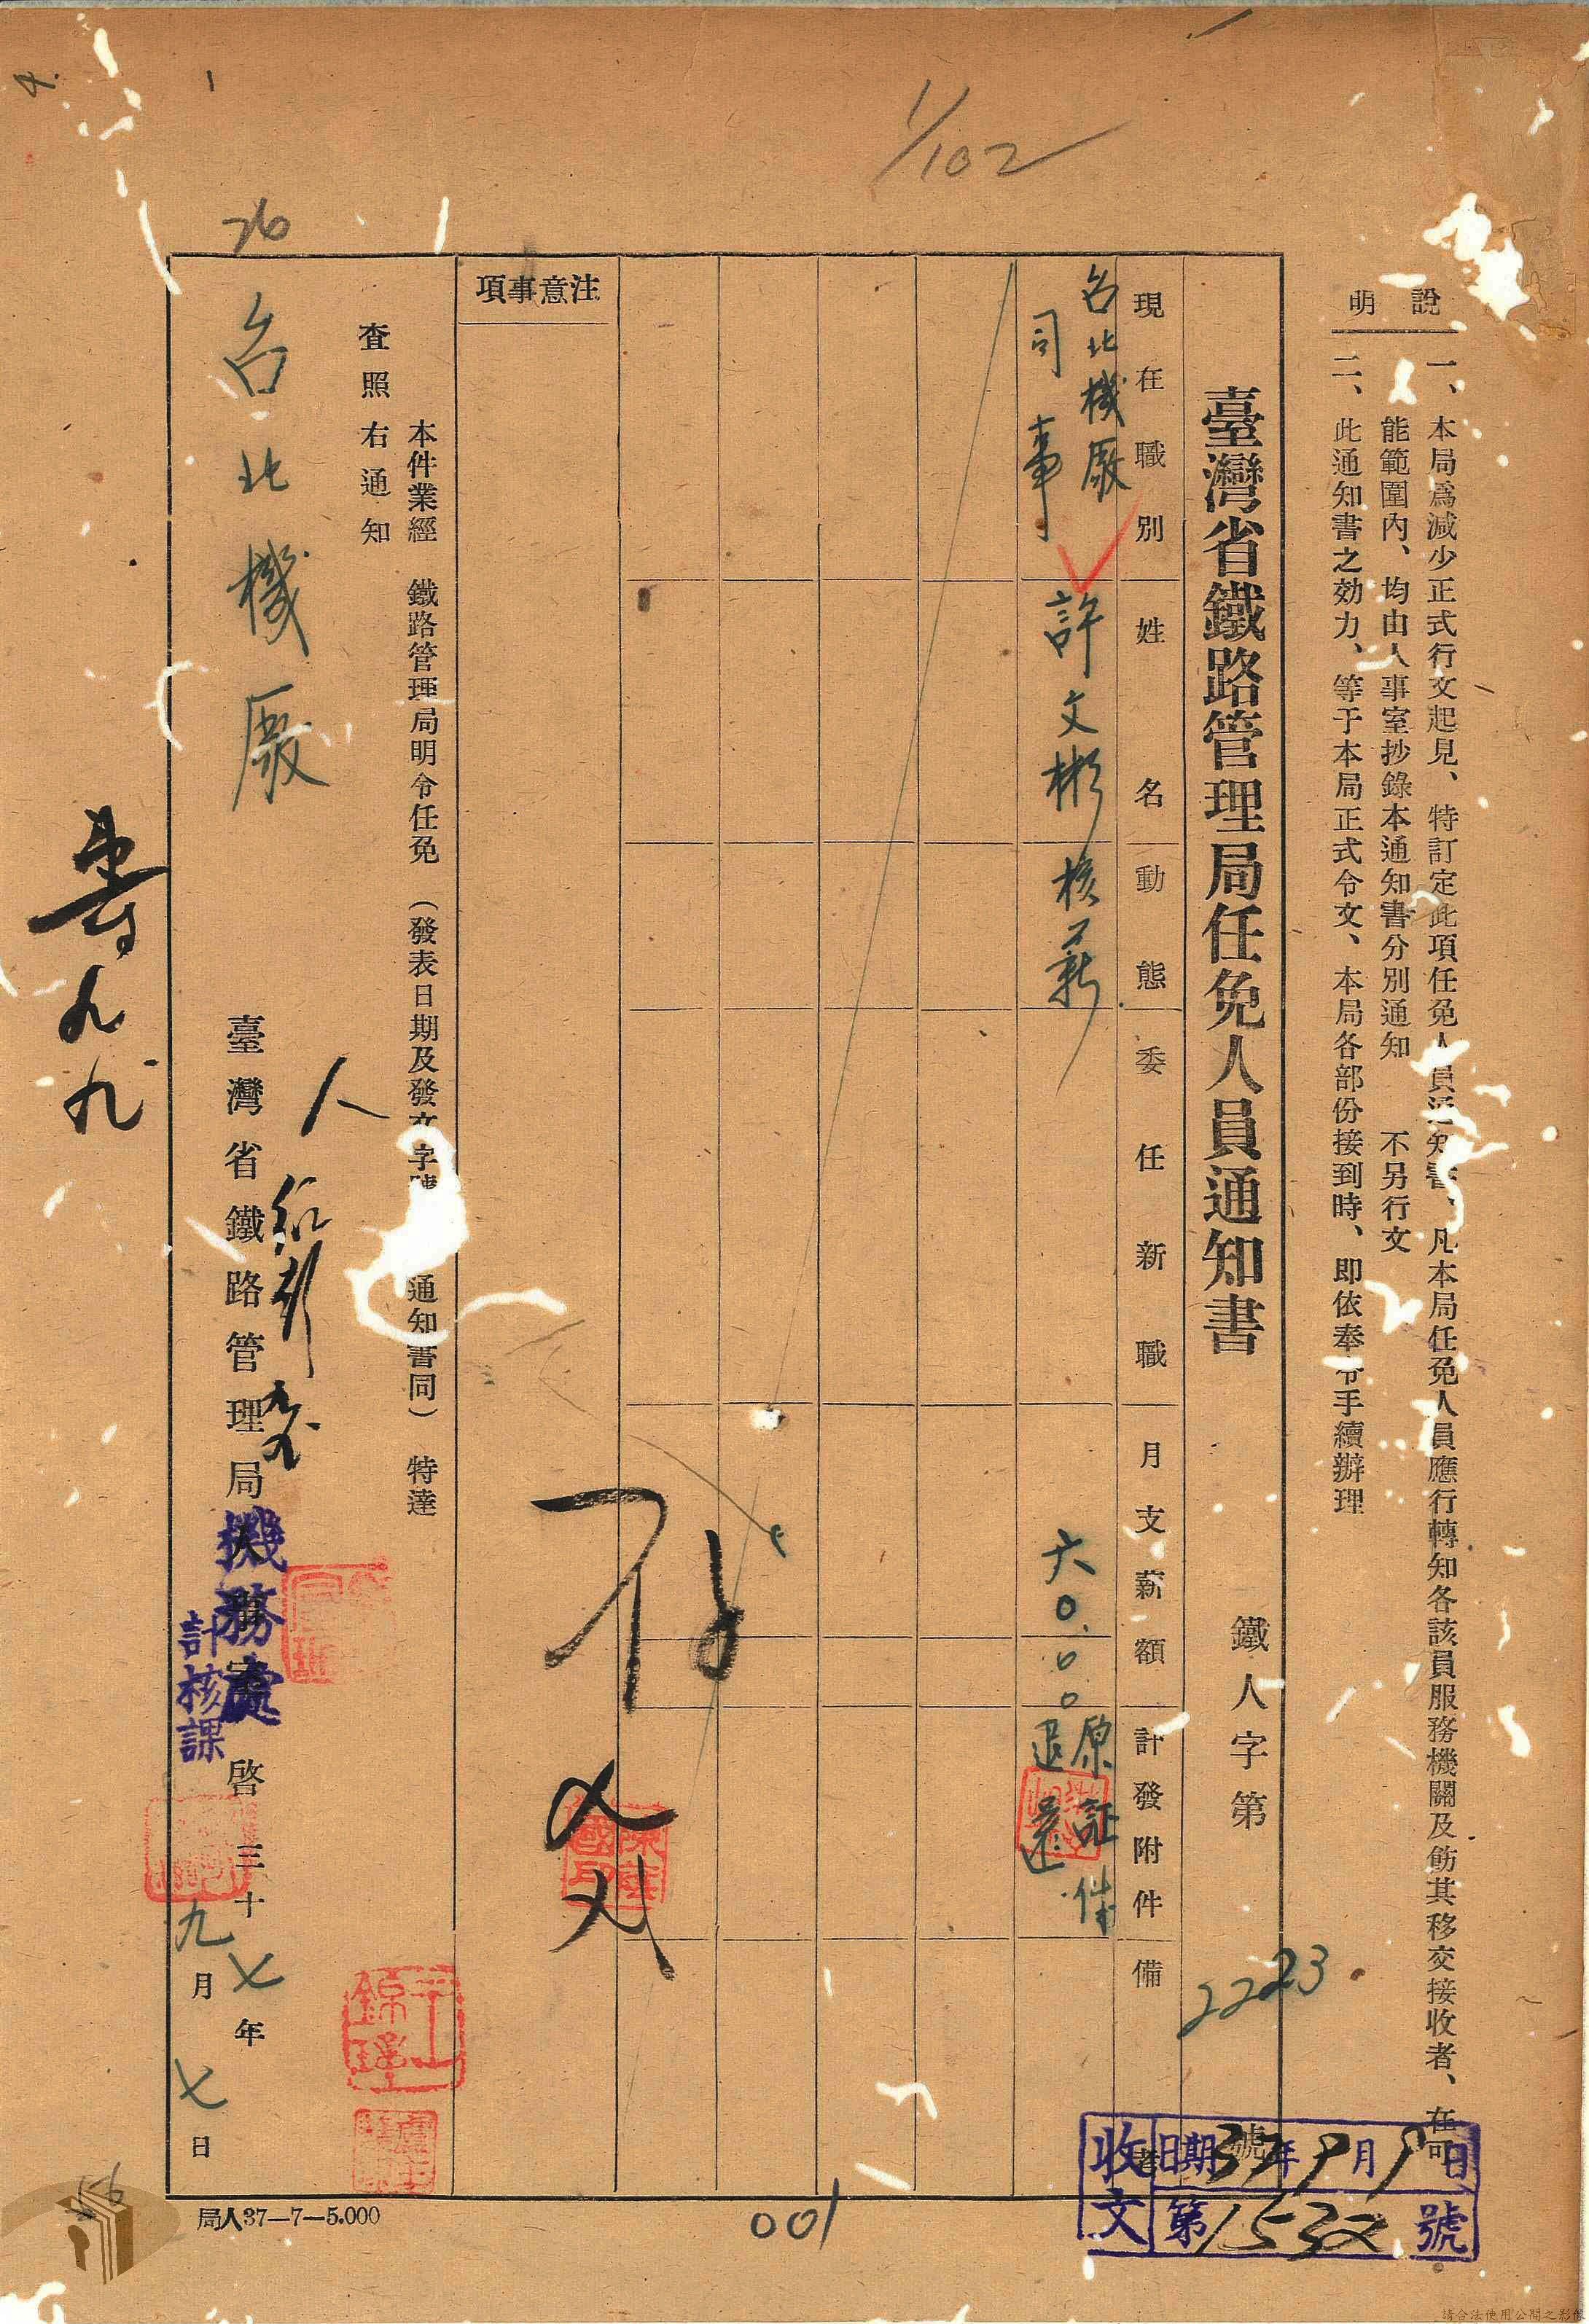 說明
一、本局爲減少正式行文起見、特訂定此項任免人員通知書、凡本局任免人員應行轉知各該員服務機關及飭其移交接收者、在可
能範圍內、均由人事室抄錄本通知書分別通知 不另行文
二、此通知書之効力、等于本局正式令文、本局各部份接到時、即依奉令手續辦理
臺灣省鐵路管理局任免人員通知書
鐵人字第 2223 號
現在職別
姓名
動態
委任新職
月支薪額
計發附件
備
台北機廠
司事
許文彬
核薪
六〇.〇〇
原証件
退還
注意事項
本件業經 鐵路管理局明令任免 (發表日期及發文字號 通知書同) 特達
查照 右通知
台北機廠
臺灣省鐵路管理局
機務處
計核課
啓
三十七年
九月七日
收文
日期37年9月9日
第1532號
局人37—7—5.000
001
1/102
76
請合法使用公開之影像